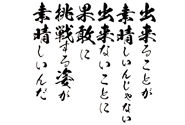 出来ることが
素晴しいんじゃない
出来ないことに
果敢に
挑戦する姿が
素晴しいんだ